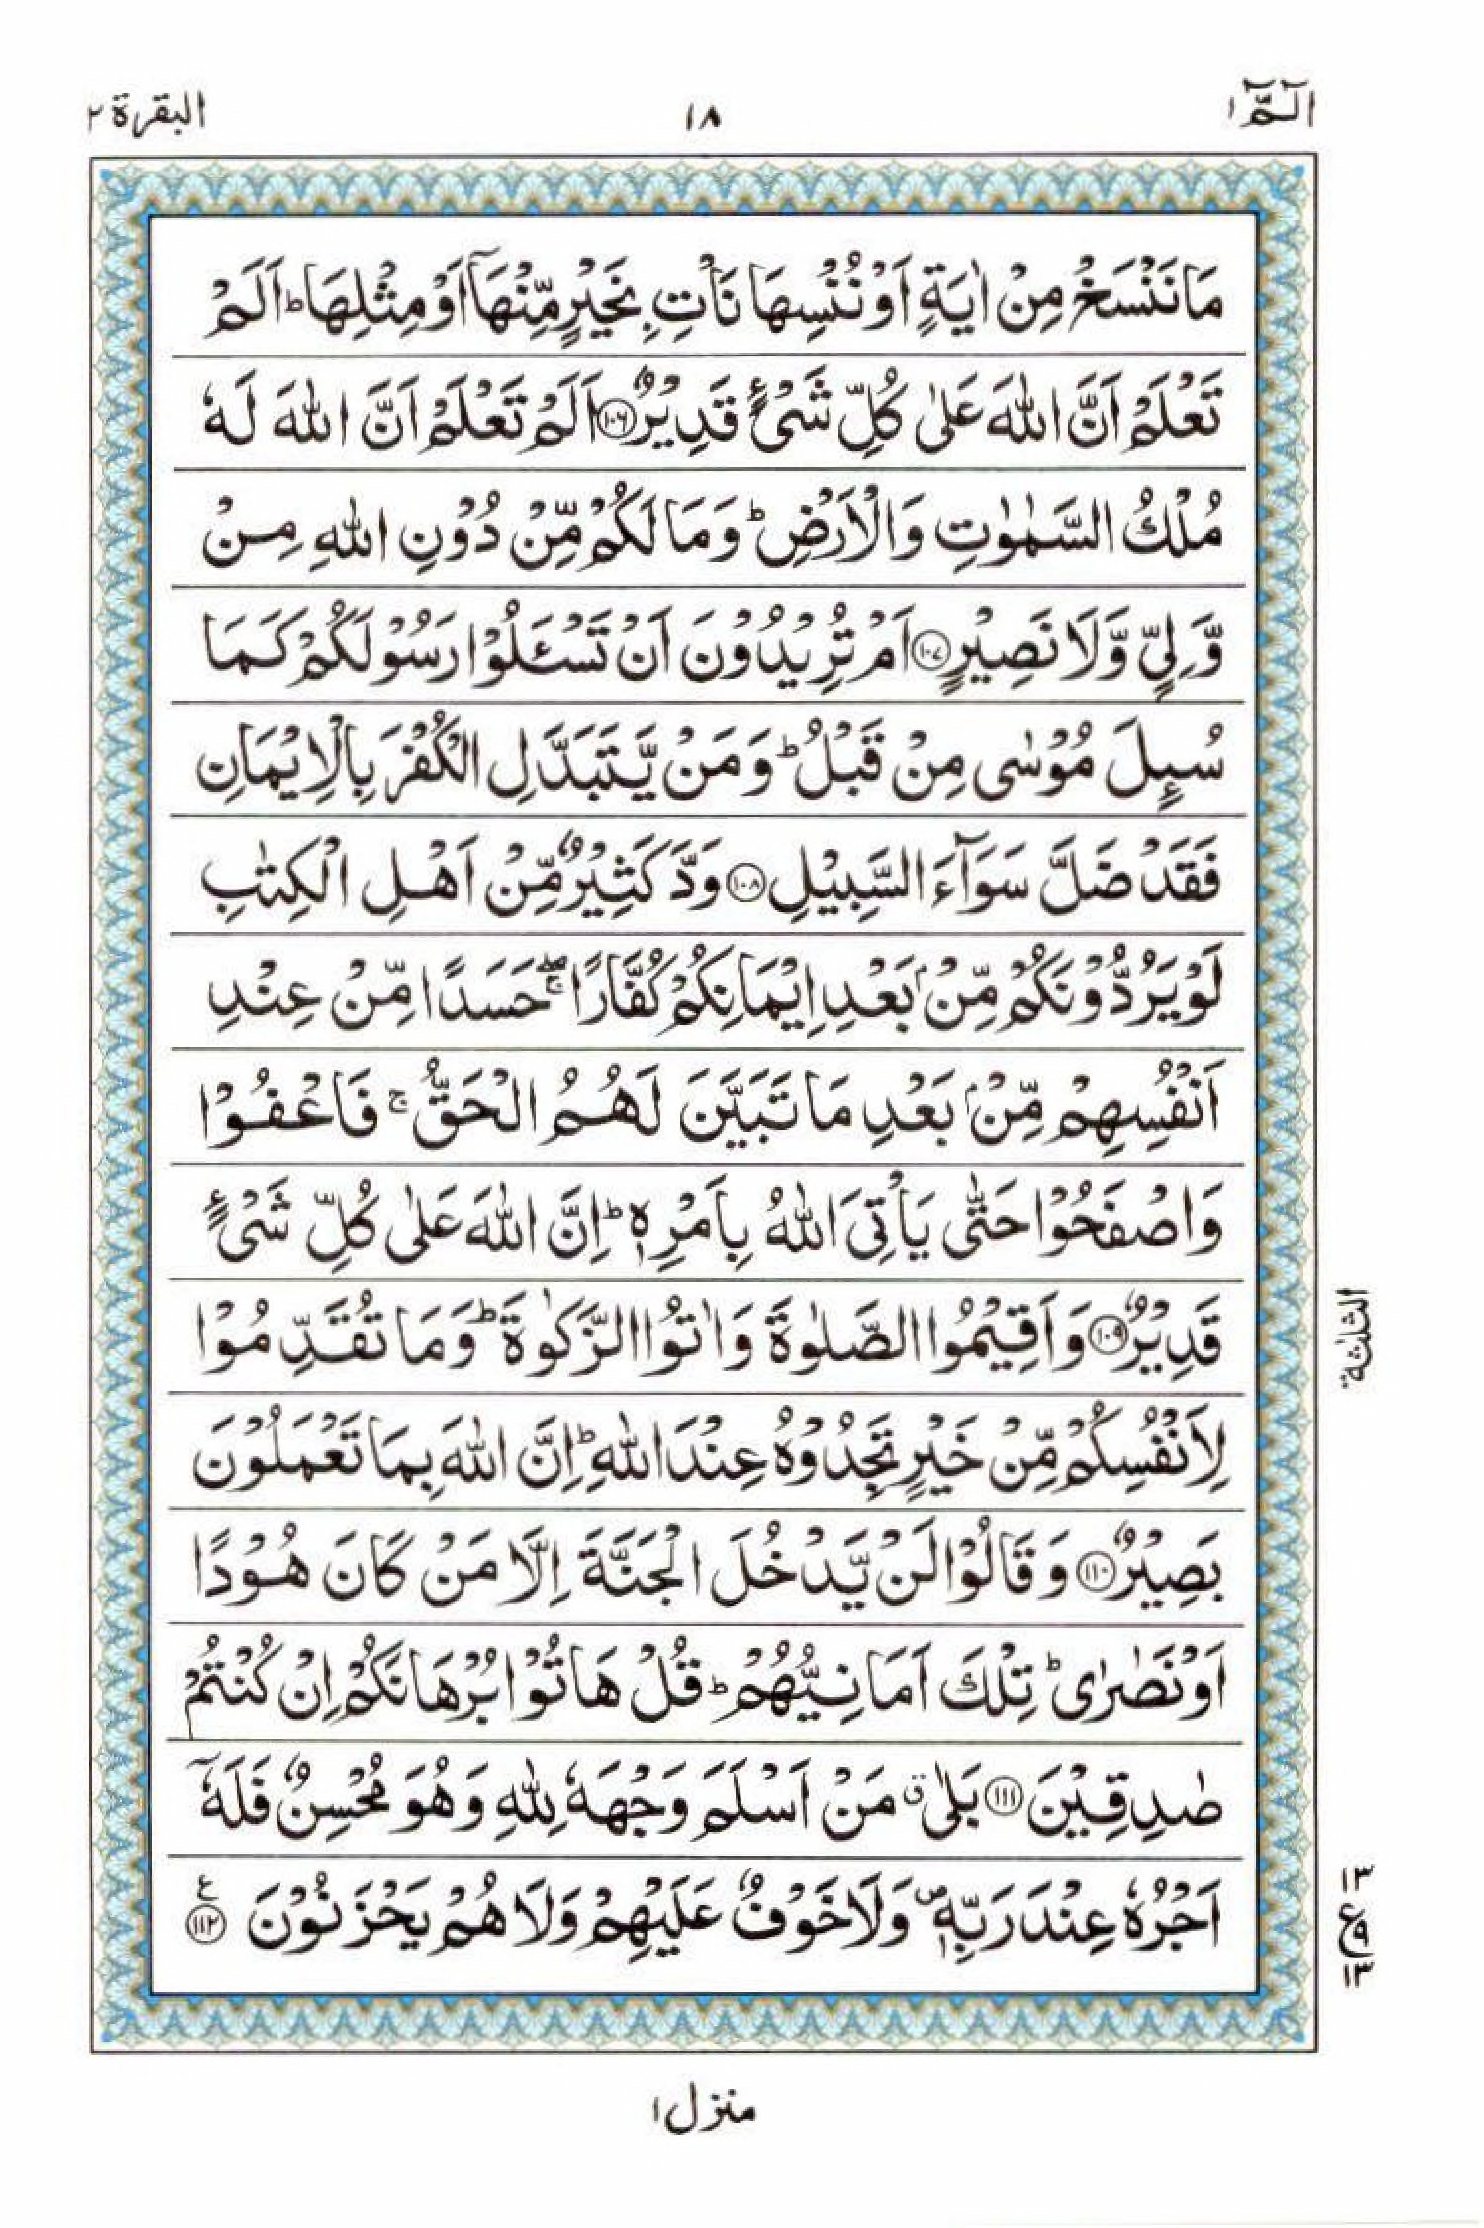 الٓمّٓ ١
١٨
البقرة ٢
مَا نَنْسَخْ مِنْ اٰيَةٍ اَوْ نُنْسِهَا نَاْتِ بِخَيْرٍ مِّنْهَآ اَوْ مِثْلِهَا ؕ اَلَمْ
تَعْلَمْ اَنَّ اللّٰهَ عَلٰى كُلِّ شَىْءٍ قَدِيْرٌ ﴿۱۰۶﴾ اَلَمْ تَعْلَمْ اَنَّ اللّٰهَ لَهٗ
مُلْكُ السَّمٰوٰتِ وَالْاَرْضِ ؕ وَمَا لَكُمْ مِّنْ دُوْنِ اللّٰهِ مِنْ
وَّلِيٍّ وَّلَا نَصِيْرٍ ﴿۱۰۷﴾ اَمْ تُرِيْدُوْنَ اَنْ تَسْـَٔلُوْا رَسُوْلَكُمْ كَمَا
سُىِٕلَ مُوْسٰى مِنْ قَبْلُ ؕ وَمَنْ يَّتَبَدَّلِ الْكُفْرَ بِالْاِيْمَانِ
فَقَدْ ضَلَّ سَوَآءَ السَّبِيْلِ ﴿۱۰۸﴾ وَدَّ كَثِيْرٌ مِّنْ اَهْلِ الْكِتٰبِ
لَوْ يَرُدُّوْنَكُمْ مِّنْۢ بَعْدِ اِيْمَانِكُمْ كُفَّارًا ۖۚ حَسَدًا مِّنْ عِنْدِ
اَنْفُسِهِمْ مِّنْۢ بَعْدِ مَا تَبَيَّنَ لَهُمُ الْحَقُّ ۚ فَاعْفُوْا
وَاصْفَحُوْا حَتّٰى يَاْتِىَ اللّٰهُ بِاَمْرِهٖ ؕ اِنَّ اللّٰهَ عَلٰى كُلِّ شَىْءٍ
قَدِيْرٌ ﴿۱۰۹﴾ وَاَقِيْمُوا الصَّلٰوةَ وَاٰتُوا الزَّكٰوةَ ؕ وَمَا تُقَدِّمُوْا
الثلثة
لِاَنْفُسِكُمْ مِّنْ خَيْرٍ تَجِدُوْهُ عِنْدَ اللّٰهِ ؕ اِنَّ اللّٰهَ بِمَا تَعْمَلُوْنَ
بَصِيْرٌ ﴿۱۱۰﴾ وَقَالُوْا لَنْ يَّدْخُلَ الْجَنَّةَ اِلَّا مَنْ كَانَ هُوْدًا
اَوْ نَصٰرٰى ؕ تِلْكَ اَمَانِيُّهُمْ ؕ قُلْ هَاتُوْا بُرْهَانَكُمْ اِنْ كُنْتُمْ
صٰدِقِيْنَ ﴿۱۱۱﴾ بَلٰى ق مَنْ اَسْلَمَ وَجْهَهٗ لِلّٰهِ وَهُوَ مُحْسِنٌ فَلَهٗٓ
اَجْرُهٗ عِنْدَ رَبِّهٖ ۪ وَلَا خَوْفٌ عَلَيْهِمْ وَلَا هُمْ يَحْزَنُوْنَ ﴿۱۱۲﴾ ع
١٣
ع ٩
١٣
منزل ١